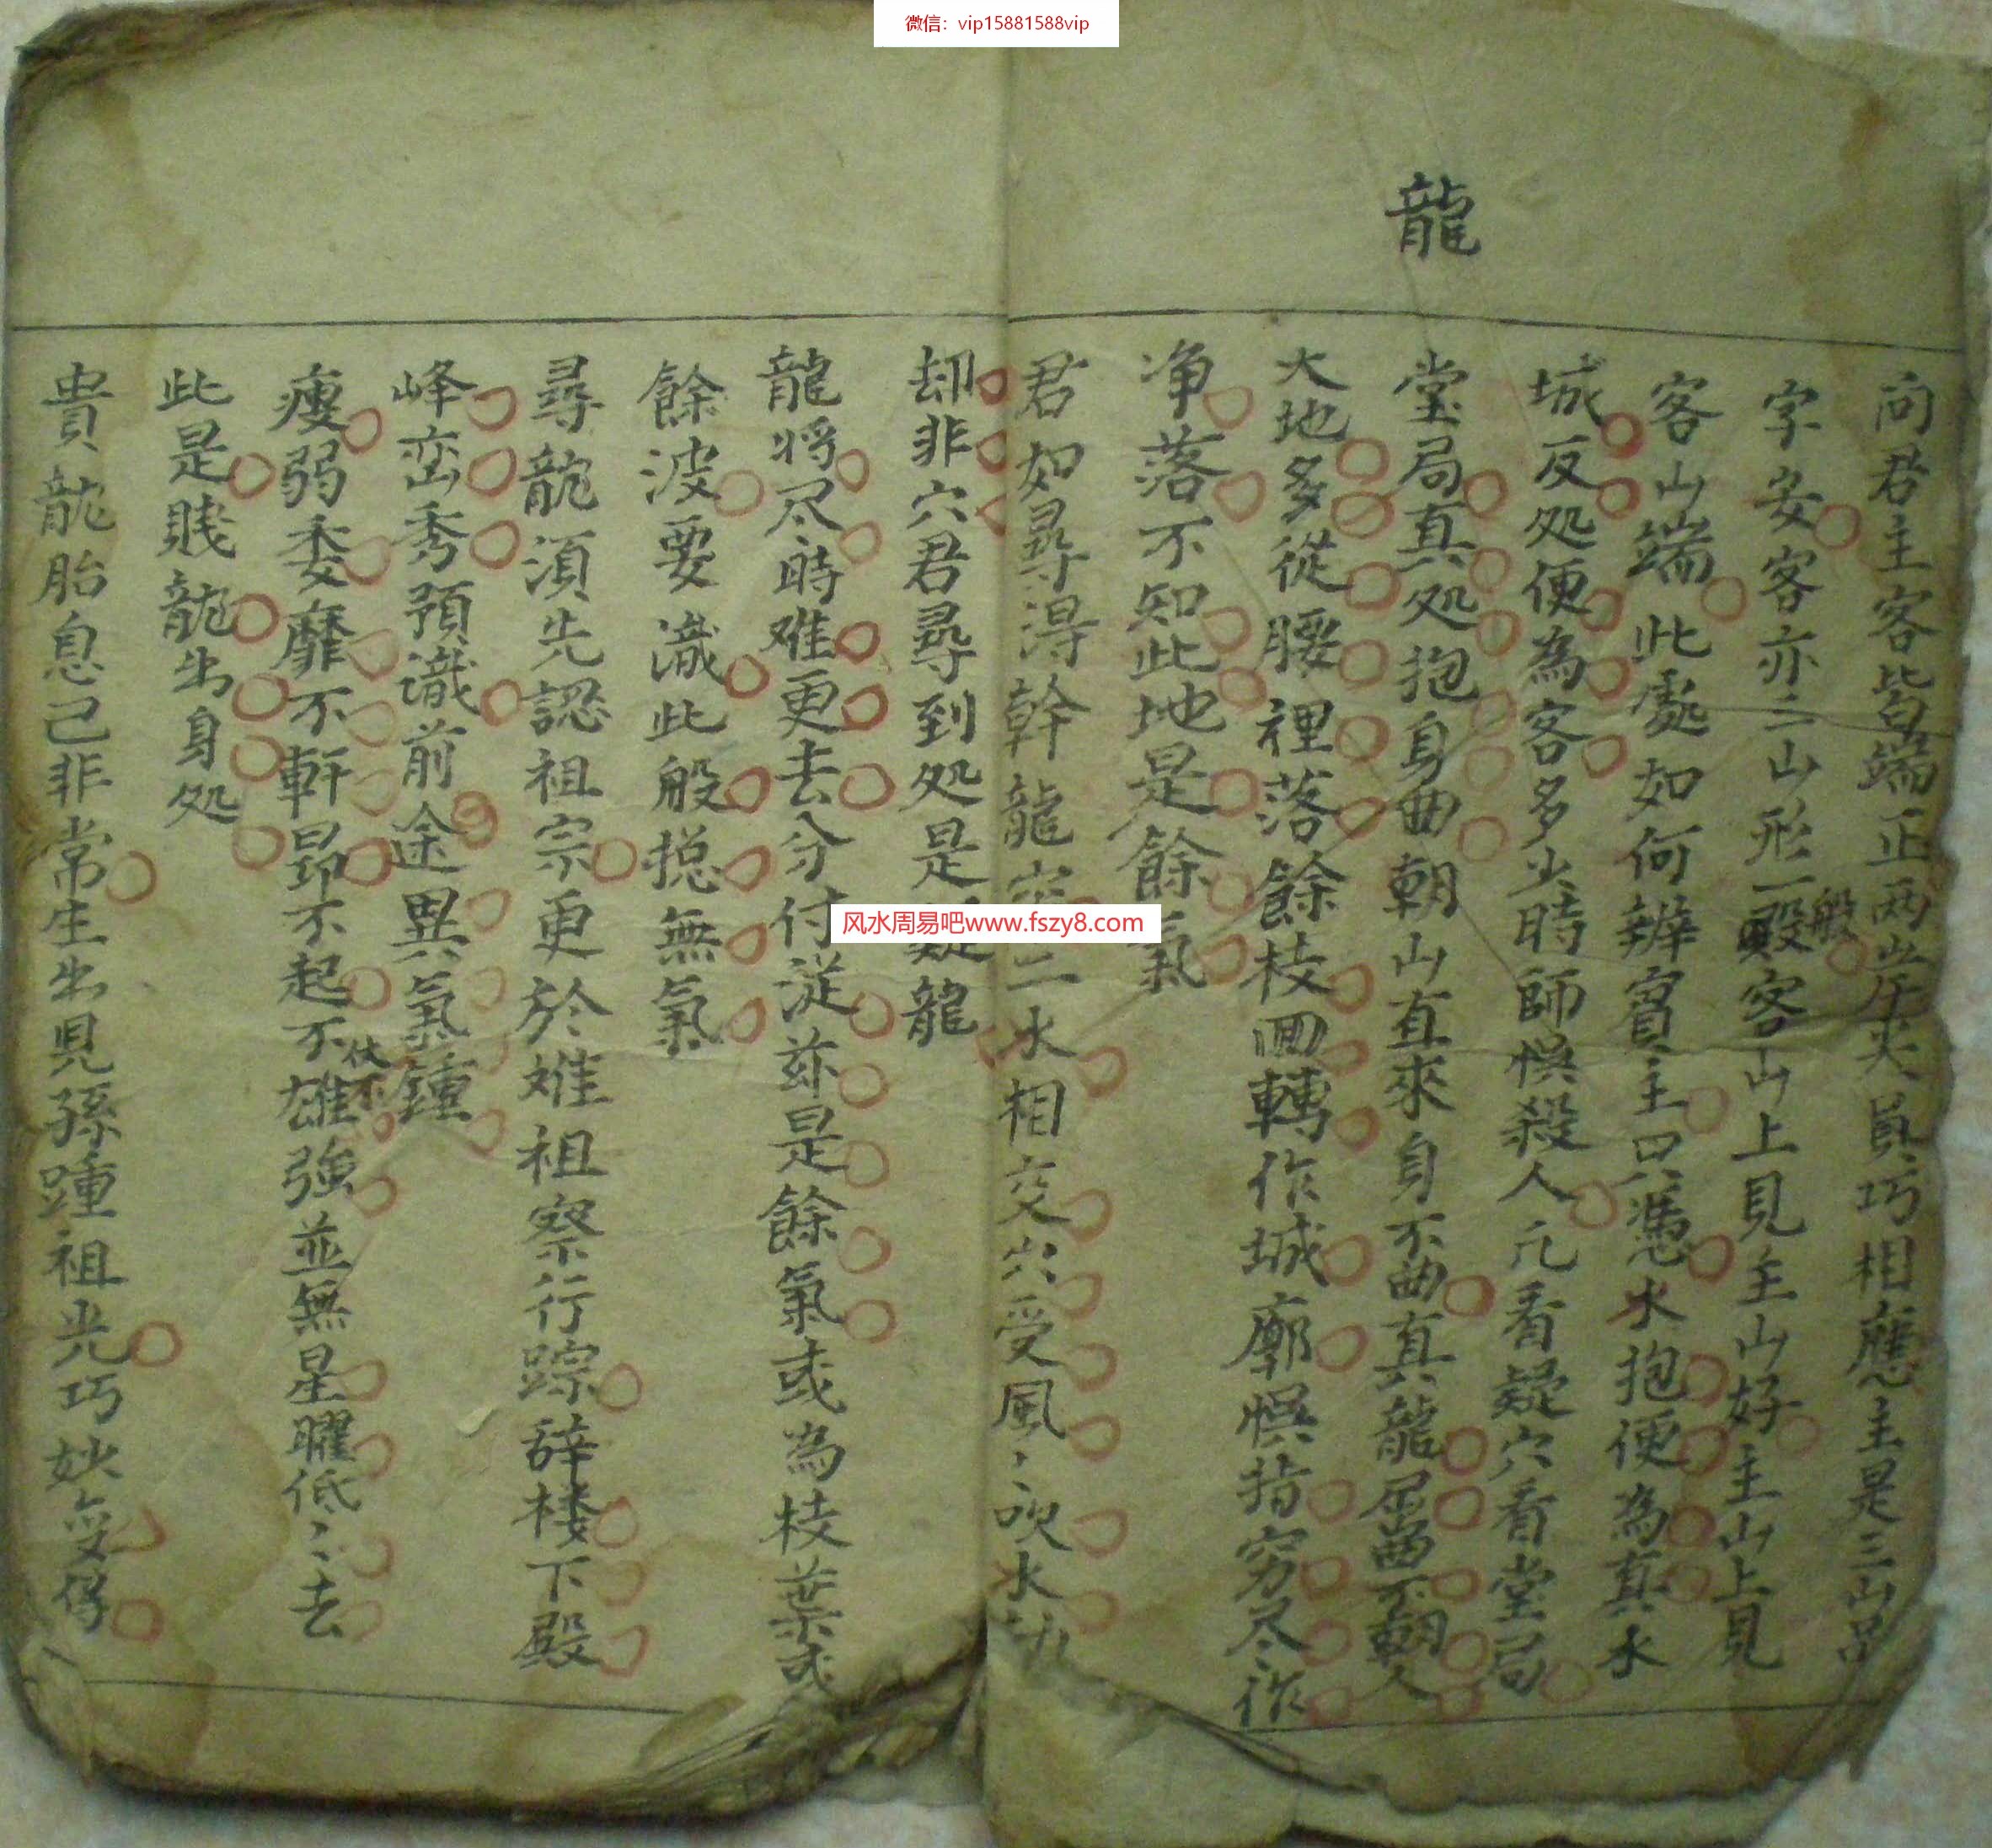 微信：vip15881588vip
龍
问君主客皆端正两岸夹員巧相應主是三山品
字安客亦三山形一殿般客山上見主山好主山上見
客山端此處如何辨賓主只憑水抱便為真水
城反処便為客多少時師悞殺人凢看疑穴看堂局
堂局真処抱身曲朝山直來身不曲真龍屈曲不朝人
大地多從腰裡落餘枝囬轉作城廓悞指穷尽作
净落不知此地是餘氣
君如尋淂幹龍二水相交穴受風〻吹水刼
却非穴君尋到処是疑龍
龍将尽時难更去分付從兹是餘氣或為枝葉或
餘波要識此般捴無氣
尋龍湏先認祖宗更於难祖察行踪辞楼下殿
峰峦秀預識前途異氣鍾
瘦弱委靡不軒昻不起不伏不雄強並無星曜低〻去
此是賎龍出身処
貴龍胎息己非常生出児孫踵祖光巧妙受係
风水周易吧www.fszy8.com